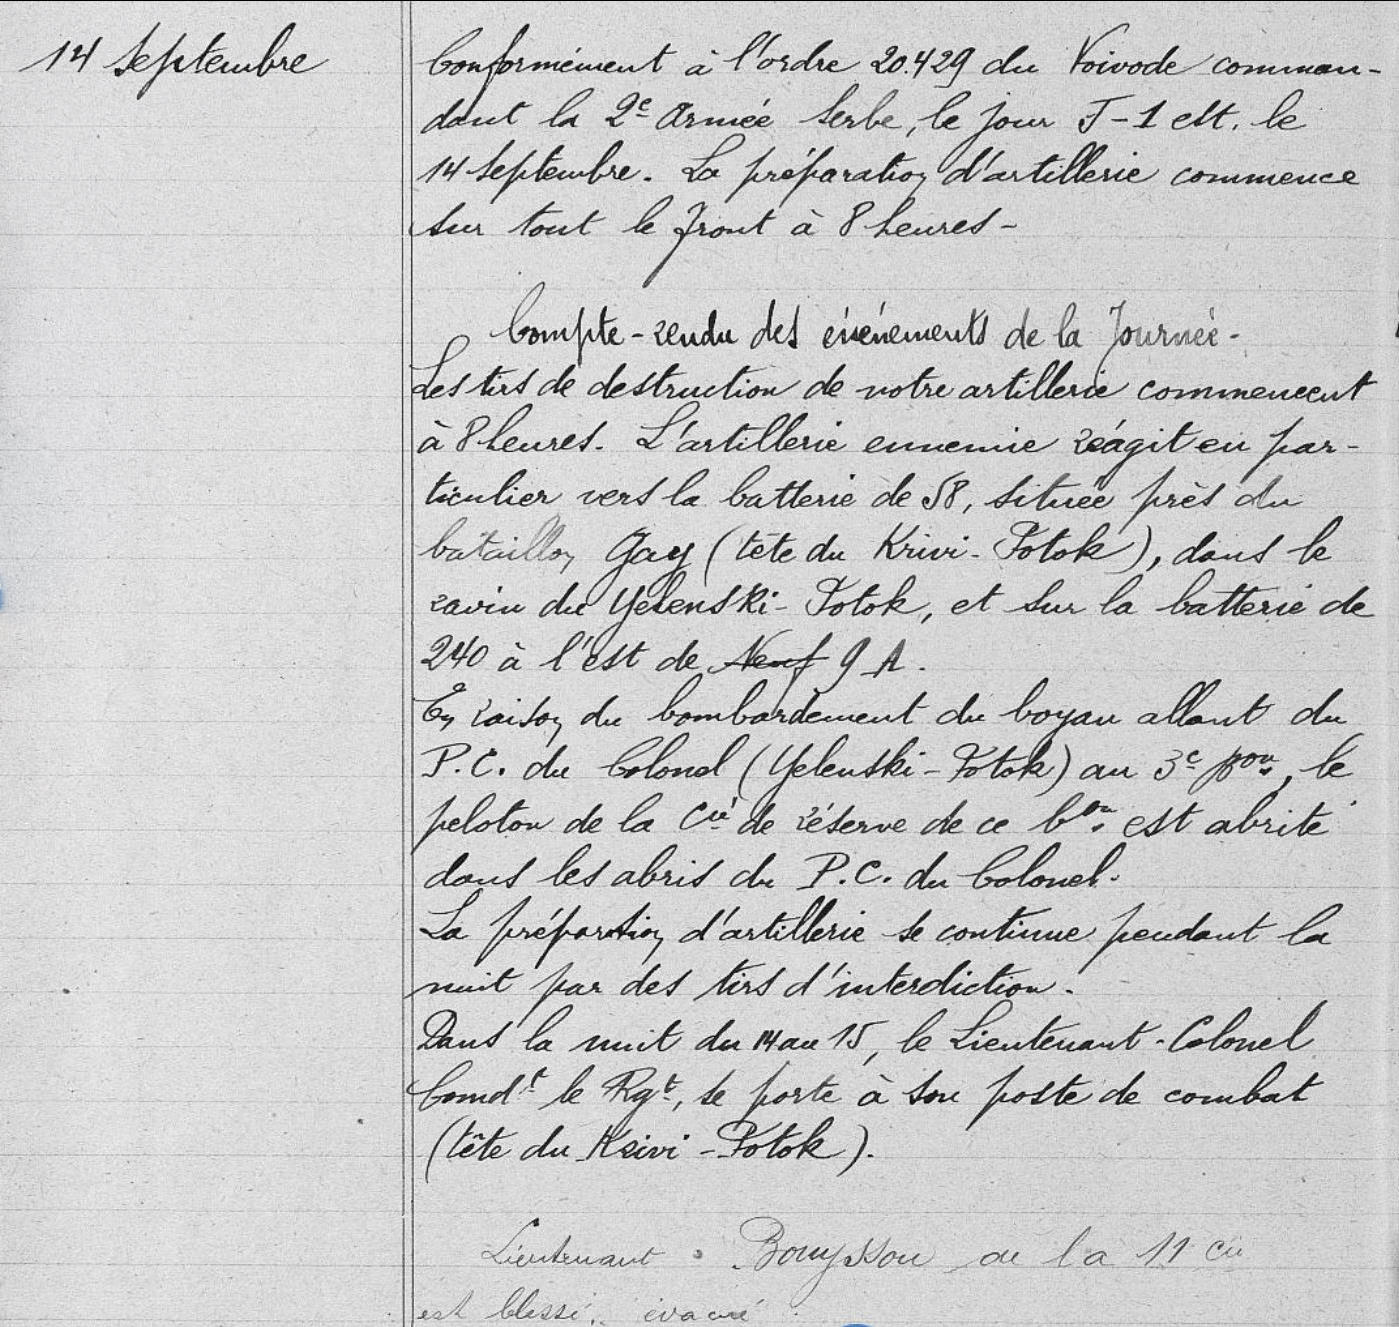 14 Septembre
Conformément à l'ordre 20.429 du Voivode comman-
dant la 2e Armée Serbe, le jour J-1 est le
14 Septembre. La préparation d'artillerie commence
sur tout le front à 8 heures -
Compte-rendu des événements de la Journée -
Les tirs de destruction de notre artillerie commencent
à 8 heures. L'artillerie ennemie réagit en par-
ticulier vers la batterie de 58, située près du
bataillon Gay (tête du Krivi-Potok), dans le
ravin du Yelenski-Potok, et sur la batterie de
240 à l'est de Neuf 9 A.
En raison du bombardement du boyau allant du
P.C. du Colonel (Yelenski-Potok) au 3e Bon, le
peloton de la Cie de réserve de ce bon est abrité
dans les abris du P.C. du Colonel.
La préparation d'artillerie se continue pendant la
nuit par des tirs d'interdiction.
Dans la nuit du 14 au 15, le Lieutenant-Colonel
Comdt le Rgt, se porte à son poste de combat
(tête du Krivi-Potok).
Lieutenant Bouyssou de la 11 Cie
est blessé, évacué